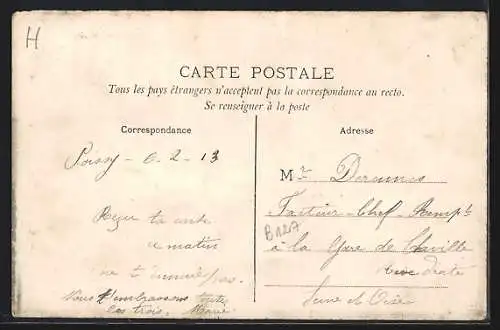 H
CARTE POSTALE
Tous les pays étrangers n'acceptent pas la correspondance au recto.
Se renseigner à la poste
Correspondance
Poissy - 6-2-13
Reçu ta carte
ce matin
ne t'ennuie pas.
Nous t'embrassons toutes
les trois. Marie
Adresse
Mr
Facteur-Chef-Remp.t
B127
à la Gare de Chaville
rive droite
Seine et Oise